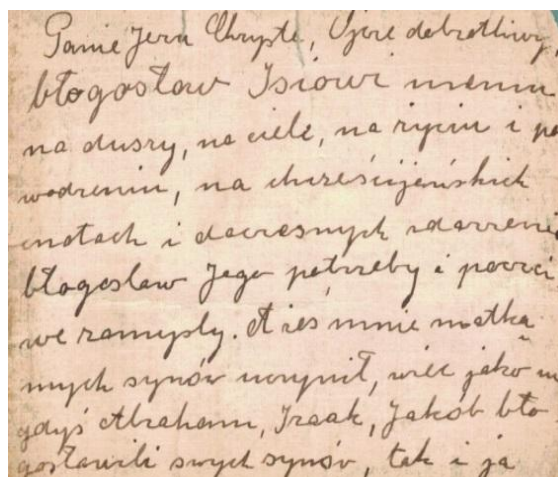 Panie Jezu Chryste, Ojcze dobrotliwy,
błogosław Isiowi memu
na duszy, na ciele, na życiu i po
wodzeniu, na chrześcijańskich
cnotach i doczesnych zdarzenia
błogosław Jego potrzeby i poczci
we zamysły. A żeś mnie matką
mych synów uczynił, więc jako nie
gdyś Abraham, Izaak, Jakób bło
gosławili swych synów, tak i ja